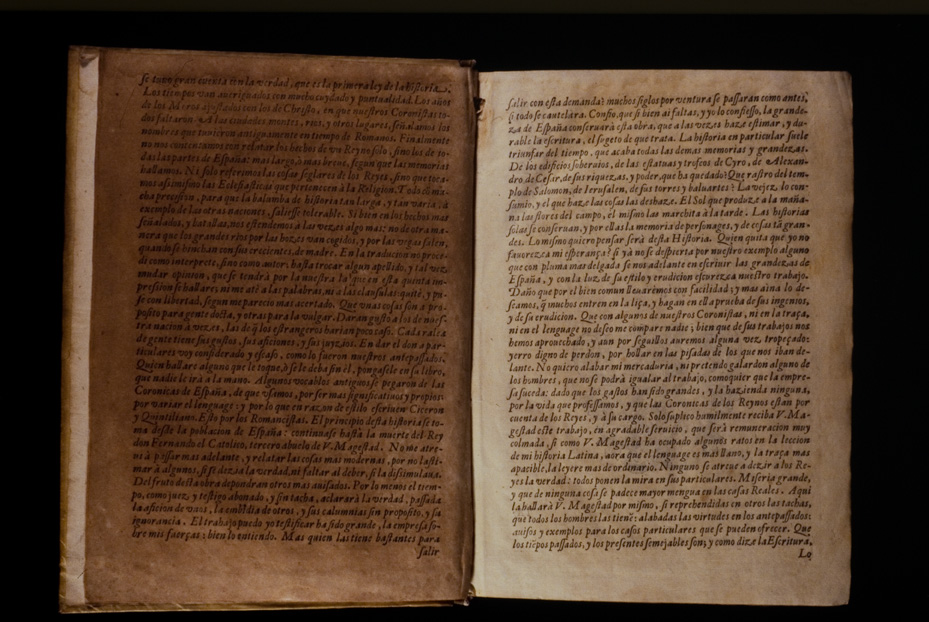 se tuuo gran cuenta con la verdad, que es la primera ley de la historia.
Los tiempos van aueriguados con mucho cuydado y puntualidad. Los años
de los Moros ajustados con los de Christo, en que nuestros Coronistas to-
dos faltaron. A las ciudades montes, rios, y otros lugares, señalamos los
nombres que tuuieron antiguamente en tiempo de Romanos. Finalmente
no nos contentamos con relatar los hechos de vn Reyno solo, sino los de to-
das las partes de España: mas largo, à mas breue, segun que las memorias
hallamos. Ni solo referimos las cosas seglares de los Reyes, sino que toca-
mos assimismo las Eclesiasticas que pertenecen à la Religion. Todo
precisso, para que la balumba de historia tan larga, y tan varia, à
exemplo de las otras naciones, saliesse tolerable. Si bien en los hechos mas
señalados, y batallas, nos estendemos a las vezes algo mas: no de otra ma-
nera que los grandes rios por las hozes van cogidos, y por las vegas salen,
quando se hinchan con sus crecientes, de madre. En la traducion no proce-
di como interprete, sino como autor: hasta trocar algun apellido, y tal vez
mudar opinion, que se tendrà por la nuestra la que en esta quinta im-
pression se hallare; ni me atè a las palabras, ni a las clausulas: quitè, y pu-
se con libertad, segun me parecio mas acertado. Que vnas cosas son a pro-
posito para gente docta, y otras para la vulgar. Daran gusto a los de nues-
tra nacion à vezes, las de q̃ los estrangeros harian poco caso. Cada ralea
de gente tiene sus gustos, sus aficiones, y sus juyzios. En dar el don a par-
ticulares voy considerado y escaso, como lo fueron nuestros antepassados.
Quien hallare alguno que le toque, ò se le deba sin èl, pongasele en su libro,
que nadie le irà a la mano. Algunos vocablos antiguos se pegaron de las
Coronicas de España, de que vsamos, por ser mas significatiuos y propios:
por variar el lenguage: y por lo que en razon de estilo escriuen Ciceron
y Quintiliano. Esto por los Romancistas. El principio desta historia se to-
ma desde la poblacion de España: continuase hasta la muerte del Rey
don Fernando el Catolico, tercero abuelo de V. Magestad. No me atre-
uì à passar mas adelante, y relatar las cosas mas modernas, por no lasti-
mar à algunos, si se dezia la verdad, ni faltar al deber, si la dissimulaua.
Del fruto desta obra depondran otros mas auisados. Por lo menos el tiem-
po, como juez, y testigo abonado, y sin tacha, aclararà la verdad, passada
la aficion de vnos, la embidia de otros, y sus calumnias sin proposito, y su
ignorancia. El trabajo puedo yo testificar ha sido grande, la empresa so-
bre mis fuerças: bien lo entiendo. Mas quien las tiene bastantes para
salir
salir con esta demanda? muchos siglos por ventura se passaran como antes,
si todo se cautelara. Confio, que si bien ai faltas, y yo lo confiesso, la grande-
za de España conseruarà esta obra, que a las vezes haze estimar, y du-
rable la escritura, el sogeto de que trata. La historia en particular suele
triunfar del tiempo, que acaba todas las demas memorias y grandezas.
De los edificios soberuios, de las estatuas y trofeos de Cyro, de Alexan-
dro de Cesar, de sus riquezas, y poder, que ha quedado? Que rastro del tem-
plo de Salomon, de Ierusalen, de sus torres y baluartes? La vejez lo con-
sumio, y el que haze las cosas las deshaze. El Sol que produze a la maña-
na las flores del campo, el mismo las marchita à la tarde. Las historias
solas se conseruan, y por ellas la memoria de personages, y de cosas tã gran-
des. Lo mismo quiero pensar serà desta Historia. Quien quita que yo no
fauorezca mi esperança? si yà no se despierta por nuestro exemplo alguno
que con pluma mas delgada se nos adelante en escriuir las grandezas de
España, y con la luz de su estilo y erudicion escurezca nuestro trabajo.
Daño que por el bien comun lleuaremos con facilidad; y mas aina lo de-
seamos, q̃ muchos entren en la liça, y hagan en ella prueba de sus ingenios,
y de su erudicion. Que con algunos de nuestros Coronistas, ni en la traça,
ni en el lenguage no deseo me compare nadie; bien que de sus trabajos nos
hemos aprouechado, y aun por seguillos auremos alguna vez tropeçado:
yerro digno de perdon, por hollar en las pisadas de los que nos iban de-
lante. No quiero alabar mi mercaduria, ni pretendo galardon alguno de
los hombres, que no se podrà igualar al trabajo, comoquier que la empre-
sa suceda: dado que los gastos han sido grandes, y la hazienda ninguna,
por la vida que professamos, y que las Coronicas de los Reynos estàn por
cuenta de los Reyes, y à su cargo. Solo suplico humilmente reciba V. Ma-
gestad este trabajo, en agradable seruicio, que serà remuneracion muy
colmada, si como V. Magestad ha ocupado algunos ratos en la leccion
de mi historia Latina, aora que el lenguage es mas llano, y la traça mas
apacible, la leyere mas de ordinario. Ninguno se atreue a dezir a los Re-
yes la verdad: todos ponen la mira en sus particulares. Miseria grande,
y que de ninguna cosa se padece mayor mengua en las casas Reales. Aqui
la hallarà V. Magestad por mismo, si reprehendidas en otros las tachas,
que todos los hombres las tienẽ: alabadas las virtudes en los antepassados:
auisos y exemplos para los casos particulares que se pueden ofrecer. Que
los tiẽpos passados, y los presentes semejables son; y como dize la Escritura,
Lo